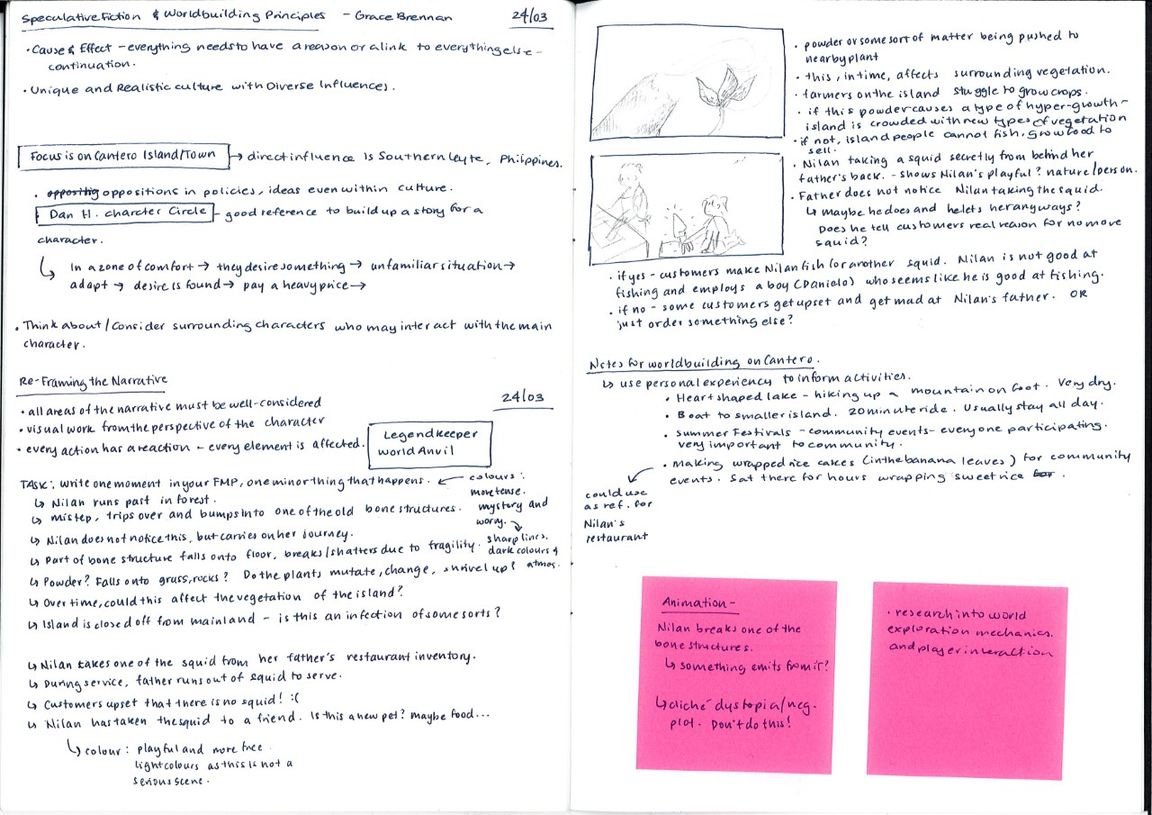 Speculative Fiction & Worldbuilding Principles - Grace Brennan
24/03
• Cause & Effect - everything needs to have a reason or a link to everything else -
continuation.
• Unique and Realistic culture with Diverse Influences.
Focus is on Cantero Island/Town → direct influence is Southern Leyte, Philippines.
• opposting oppositions in policies, ideas even within culture.
Dan H. charcter Circle - good reference to build up a story for a
character.
↳ In a zone of comfort → they desire something → unfamiliar situation →
adapt → desire is found → pay a heavy price →
• Think about / Consider surrounding characters who may interact with the main
character.
Re-Framing the Narrative
24/03
• all areas of the narrative must be well-considered
• visual work from the perspective of the character
• every action has a reaction - every element is affected.
Legendkeeper
World Anvil
TASK: write one moment in your FMP, one minor thing that happens. ← colours:
more tense.
mystery and
worry.
sharp lines.
dark colours &
atmos.
↳ Nilan runs past in forest.
↳ misstep, trips over and bumps into one of the old bone structures.
↳ Nilan does not notice this, but carries on her journey.
↳ Part of bone structure falls onto floor, breaks/shatters due to fragility.
↳ Powder? Falls onto grass, rocks? Do the plants mutate, change, shrivel up?
↳ Over time, could this affect the vegetation of the island?
↳ Island is closed off from mainland - is this an infection of some sorts?
↳ Nilan takes one of the squid from her father's restaurant inventory.
↳ During service, father runs out of squid to serve.
↳ Customers upset that there is no squid! :(
↳ Nilan has taken the squid to a friend. Is this a new pet? maybe food...
↳ colour: playful and more free.
light colours as this is not a
serious scene.
• powder or some sort of matter being pushed to
nearby plant
• this, in time, affects surrounding vegetation.
• farmers on the island stuggle to grow crops.
• if this powder causes a type of hyper-growth -
island is crowded with new types of vegetation
• if not, island people cannot fish, grow food to
sell.
• Nilan taking a squid secretly from behind her
father's back. - shows Nilan's playful? nature/person.
• Father does not notice Nilan taking the squid.
↳ maybe he does and he lets her anyways?
Does he tell customers real reason for no more
squid?
• if yes - customers make Nilan fish for another squid. Nilan is not good at
fishing and employs a boy (Danielo) who seems like he is good at fishing.
• if no - some customers get upset and get mad at Nilan's father. OR
just order something else?
Notes for worldbuilding on Cantero.
↳ use personal experiency to inform activities.
• Heart shaped lake - hiking up a mountain on foot. Very dry.
• Boat to smaller island. 20 minute ride. Usually stay all day.
• Summer Festivals - community events - everyone participating.
very important to community.
• Making wrapped rice cakes (in the banana leaves) for community
events. Sat there for hours wrapping sweet rice for.
could use
as ref. for
Nilan's
restaurant
Animation -
Nilan breaks one of the
bone structures.
↳ something emits from it?
↳ cliché dystopia/neg.
plot. Don't do this!
• research into world
exploration mechanics.
and player interaction